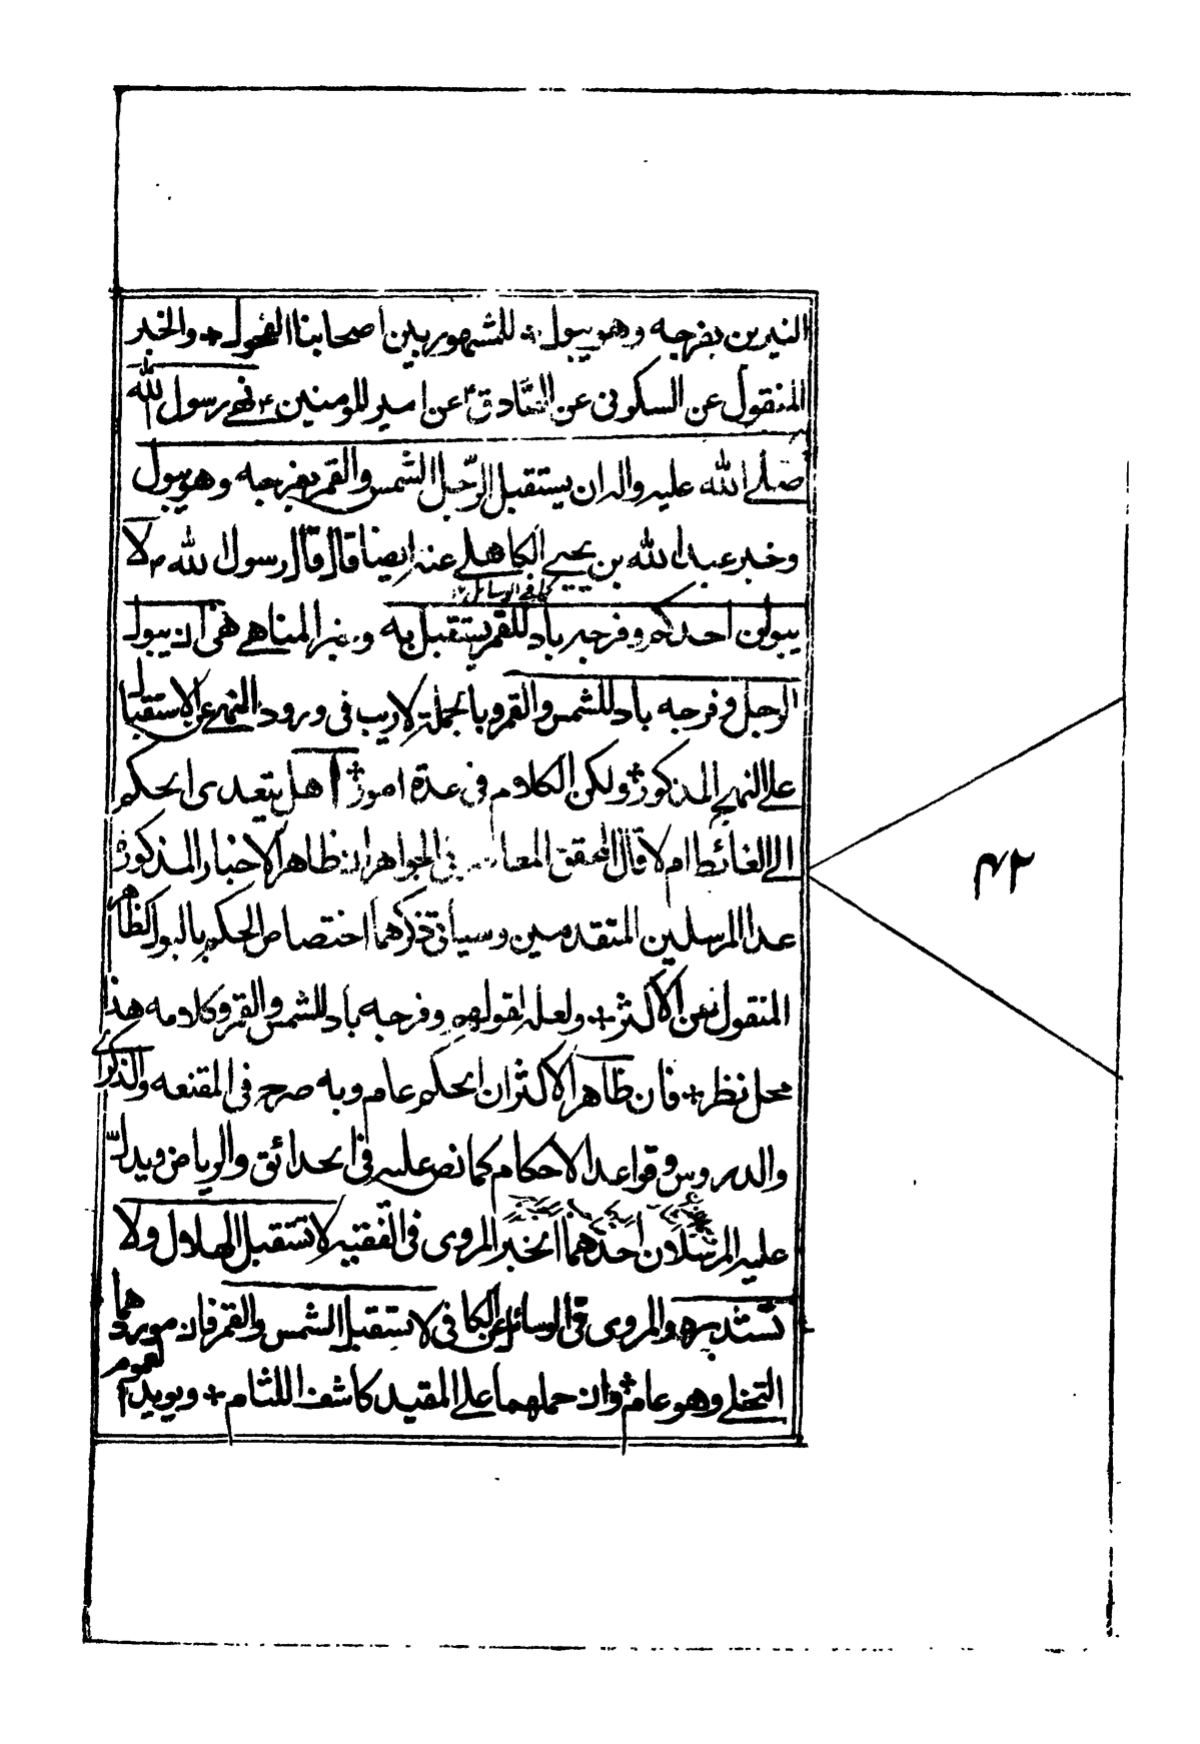 النيرين بفرجه وهو يبول + للمشهور بين اصحابنا الفحول + والخبر
المنقول عن السكونى عن الصّادق ع عن امير المومنين ع نهى رسول الله
صلى الله عليه واله ان يستقبل الرّجل الشمس والقمر بفرجه وهو يبول
وخبر عبد الله بن يحيى الكاهلى عنه ايضا قال قال رسول الله ص لا
كما فى الوسائل ١٢
يبولن احدكم وفرجه باد للقمر يستقبل به وخبر المناهى نهى ان يبول
الرجل وفرجه باد للشمس والقمر وبالجملة لاريب فى ورود النهى عن الاستقبال
على النهج المذكور + ولكن الكلام فى عدة امور + آ هل يتعدى الحكم
الى الغائط ام لا قال المحقق المعاصر فى الجواهر ان ظاهر الاخبار المذكورة
عدا المرسلين المتقدمين وسيأتى ذكرهما اختصاص الحكم بالبول كظاهر
المنقول عن الاكثر + ولعله لقولهم وفرجه باد للشمس والقمر وكلامه هذا
محل نظر + فان ظاهر الاكثر ان الحكم عام وبه صرح فى المقنعه والذكرى
والدروس وقواعد الاحكام كما نص عليه فى الحدائق والرياض ويدلّ
عليه المرسلان احدهما الخبر المروى فى الفقيه لا تستقبل الهلال ولا
تستدبره والمروى فى الوسائل عن الكافى لا تستقبل الشمس والقمر فان موردهما
التخلى وهو عام + وان حملهما على المقيد كاشف اللثام + ويويد العموم
٤٢